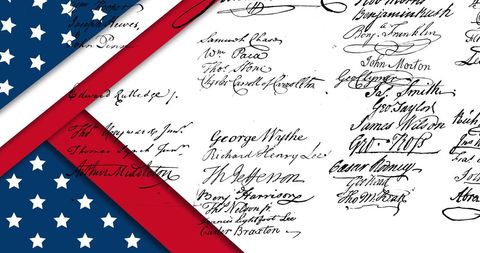 Joseph Hewes,
John Penn
Edward Rutledge /.
Thos Heyward Junr.
Thomas Lynch Junr.
Arthur Middleton
Samuel Chase
Wm Paca
Thos Stone
Charles Carroll of Carrollton
George Wythe
Richard Henry Lee
Th Jefferson
Benj Harrison
Thos Nelson jr.
Francis Lightfoot Lee
Carter Braxton
Benjamin Rush
Benj. Franklin
John Morton
Geo Clymer
Jas. Smith
Geo. Taylor
James Wilson
Geo. Ross
Caesar Rodney
Geo Read
Tho M:Kean